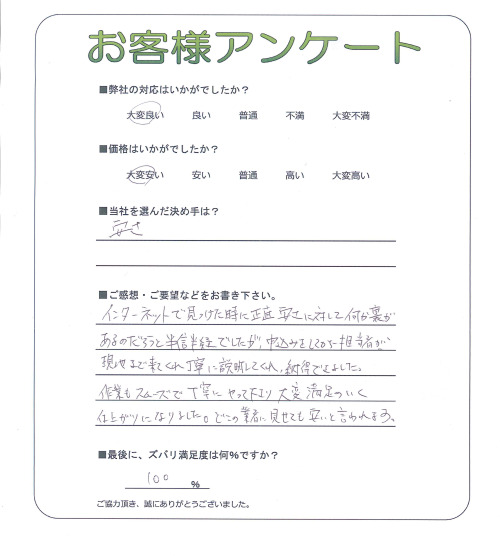 お客様アンケート
■弊社の対応はいかがでしたか？
大変良い 良い 普通 不満 大変不満
■価格はいかがでしたか？
大変安い 安い 普通 高い 大変高い
■当社を選んだ決め手は？
安さ
■ご感想・ご要望などをお書き下さい。
インターネットで見つけた時に正直安さに対して何か裏が
あるのだろうと半信半疑でしたが、申込みをしてから担当者が、
現場まで来てくれ丁寧に説明してくれ、納得できました。
作業もスムーズで丁寧にやって下さり大変満足のいく
仕上がりになりました。どこの業者に見せても安いと言われます。
■最後に、ズバリ満足度は何%ですか？
100 %
ご協力頂き、誠にありがとうございました。